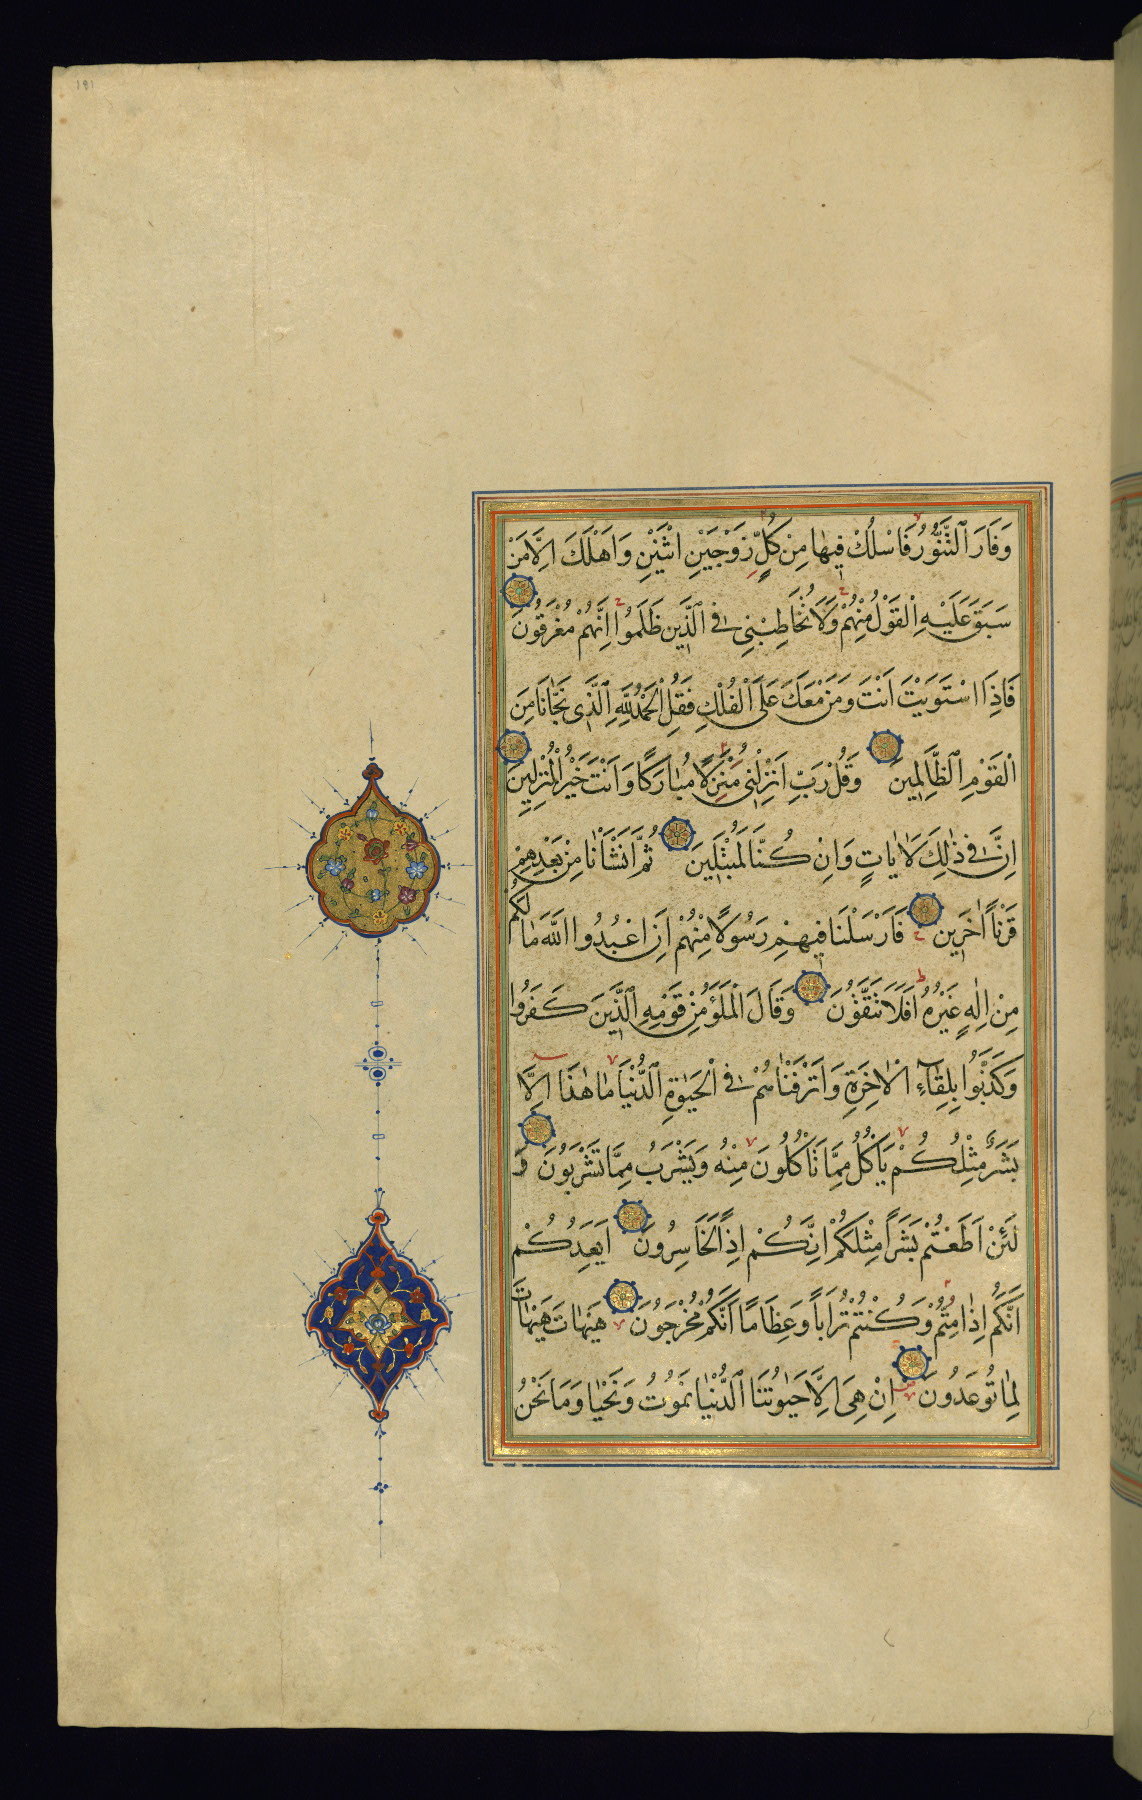 وَفَارَ ٱلتَّنُّورُ فَاسْلُكْ فِيهَا مِنْ كُلٍّ زَوْجَيْنِ اثْنَيْنِ وَاَهْلَكَ اِلَّا مَنْ
سَبَقَ عَلَيْهِ الْقَوْلُ مِنْهُمْ وَلَا تُخَاطِبْنِى فِى ٱلَّذِينَ ظَلَمُوا اِنَّهُمْ مُغْرَقُونَ
فَاِذَا اسْتَوَيْتَ اَنْتَ وَمَنْ مَعَكَ عَلَى الْفُلْكِ فَقُلِ الْحَمْدُ لِلّٰهِ ٱلَّذِى نَجّٰانَا مِنَ
الْقَوْمِ ٱلظَّالِمِينَ وَقُلْ رَبِّ اَنْزِلْنِى مُنْزَلًا مُبٰارَكًا وَاَنْتَ خَيْرُ الْمُنْزِلِينَ
اِنَّ فِى ذٰلِكَ لَاٰيَاتٍ وَاِنْ كُنَّا لَمُبْتَلِينَ ثُمَّ اَنْشَاْنَا مِنْ بَعْدِهِمْ
قَرْنًا اٰخَرِينَ فَاَرْسَلْنَا فِيهِمْ رَسُولًا مِنْهُمْ اَنِ اعْبُدُوا اللّٰهَ مَا لَكُمْ
مِنْ اِلٰهٍ غَيْرُهُ اَفَلَا تَتَّقُونَ وَقَالَ الْمَلَؤُ مِنْ قَوْمِهِ ٱلَّذِينَ كَفَرُوا
وَكَذَّبُوا بِلِقَآءِ الْاٰخِرَةِ وَاَتْرَفْنَاهُمْ فِى الْحَيٰوةِ ٱلدُّنْيَا مَا هٰذَا اِلَّا
بَشَرٌ مِثْلُكُمْ يَاْكُلُ مِمَّا تَاْكُلُونَ مِنْهُ وَيَشْرَبُ مِمَّا تَشْرَبُونَ وَ
لَئِنْ اَطَعْتُمْ بَشَرًا مِثْلَكُمْ اِنَّكُمْ اِذًا لَخَاسِرُونَ اَيَعِدُكُمْ
اَنَّكُمْ اِذَا مِتُّمْ وَكُنْتُمْ تُرَابًا وَعِظَامًا اَنَّكُمْ مُخْرَجُونَ هَيْهَاتَ هَيْهَاتَ
لِمَا تُوعَدُونَ اِنْ هِىَ اِلَّا حَيٰوتُنَا ٱلدُّنْيَا نَمُوتُ وَنَحْيَا وَمَا نَحْنُ
181